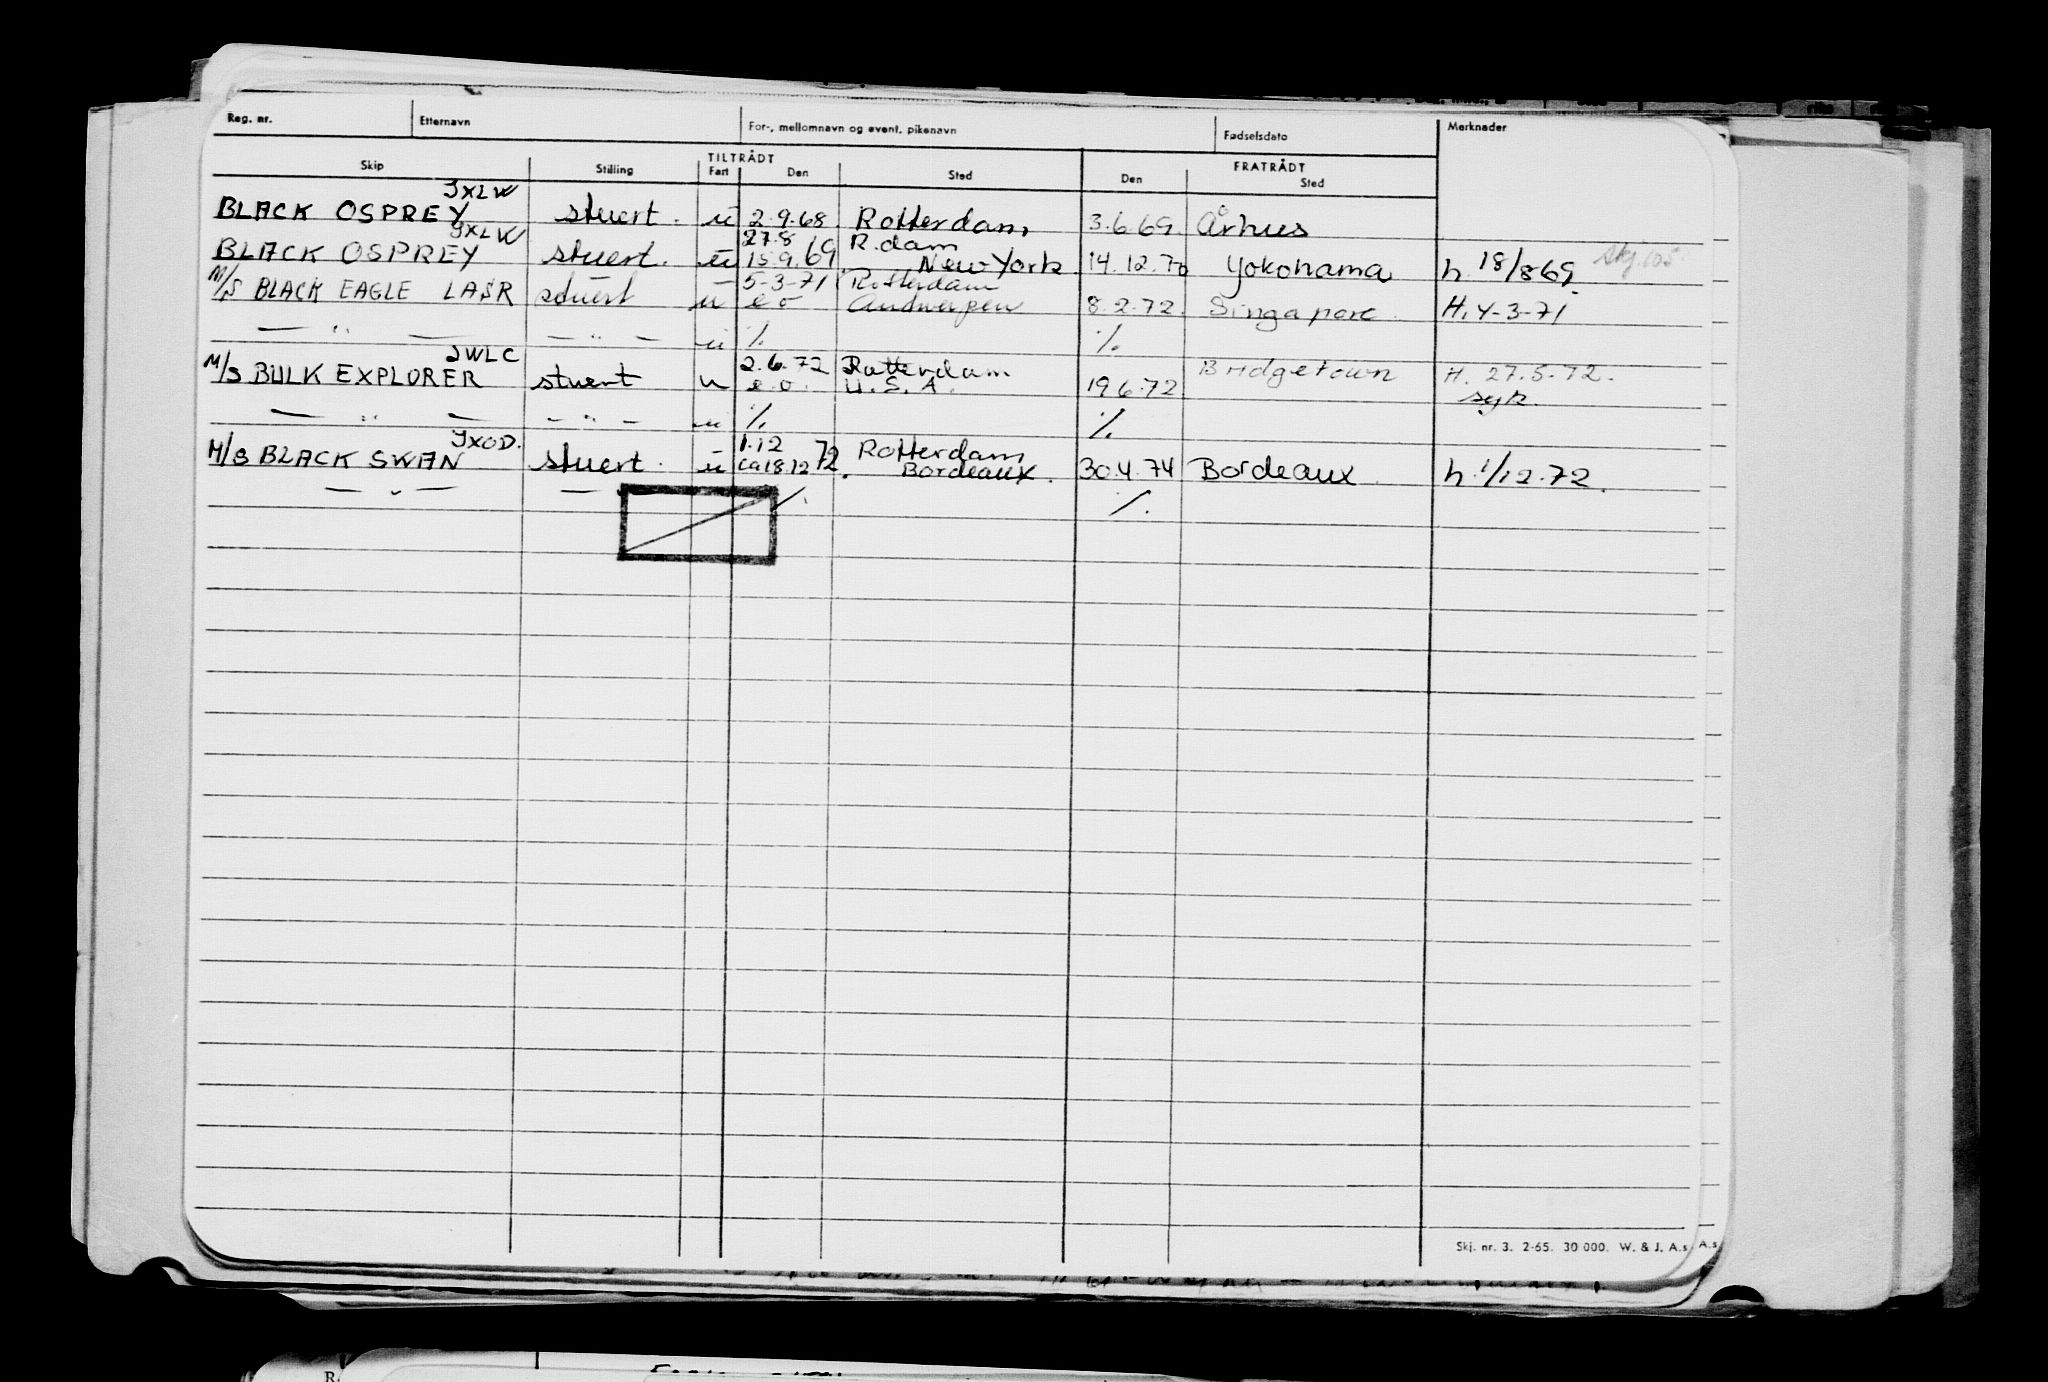 Reg. nr. Etternavn For-, mellomnavn og event. pikenavn Fødselsdato Merknader
TILTRÅDT FRATRÅDT
Skip Stilling Fart Den Sted Den Sted
JXLW
BLACK OSPREY stuert. u 2.9.68. Rotterdam, 3.6.69. Århus
JXLW 27.8 R.dam
BLACK OSPREY stuert. u 15.9.69 New York. 14.12.70 Yokohama h. 18/8 69. Skj. 105
5-3-71 Rotterdam
M/S BLACK EAGLE LASR stuert u e o Antwerpen 8.2.72. Singapore. H. 4-3-71
— " — — " — u % %
JWLC 2.6.72 Rotterdam Bridgetown H. 27.5.72.
M/S BULK EXPLORER stuert u e.o. U.S.A. 19 6.72 syk.
— " — — " — u % %
JXOD. 1.12 72 Rotterdam
M/S BLACK SWAN stuert. u ca 18.12 72. Bordeaux. 30.4.74 Bordeaux. h. 1/12.72.
— " — — " % %.
Skj. nr. 3. 2-65. 30 000. W. & J. A.s A.s